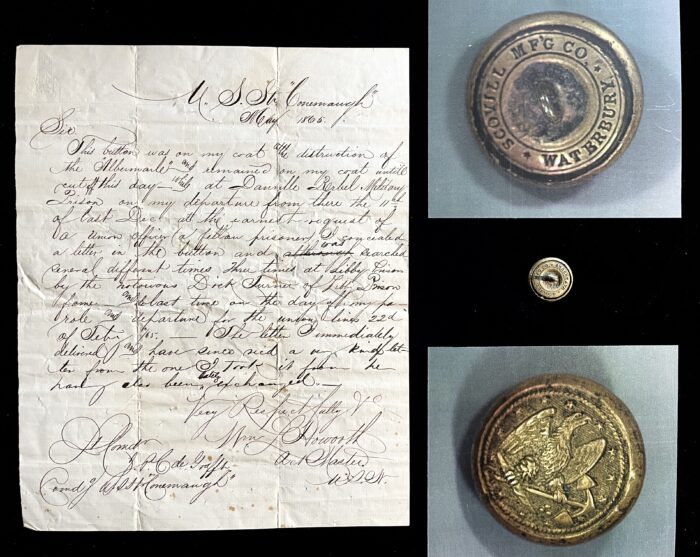 U. S. Str. "Conemaugh"
May 1865.
Sir
This button was on my coat at the distruction of
the "Albemarle" and remained on my coat untill
cut off this day — while at Danville Rebel Military
Prison on my departure from there the 11th
of last Dec. at the earnest request of
a union officer (a fellow prisoner) I concealed
a letter in the button and was searched
several different times, three times at Libby Prison
by the notorious Dick Turner of Libby Prison
fame — and last time on the day of my pa
role and departure for the union lines 22d
of Feby /65. — The letter I immediately
delivered and have since recd a very kind let
ter from the one I took it from he
having also been lately exchanged. —
Very Respectfully
Wm L Howorth
Act Master
U.S.N.
Lt Comdr
J. P. C de Grafft
Comdg U.S.S. "Conemaugh"
SCOVILL MF'G CO.
* WATERBURY *